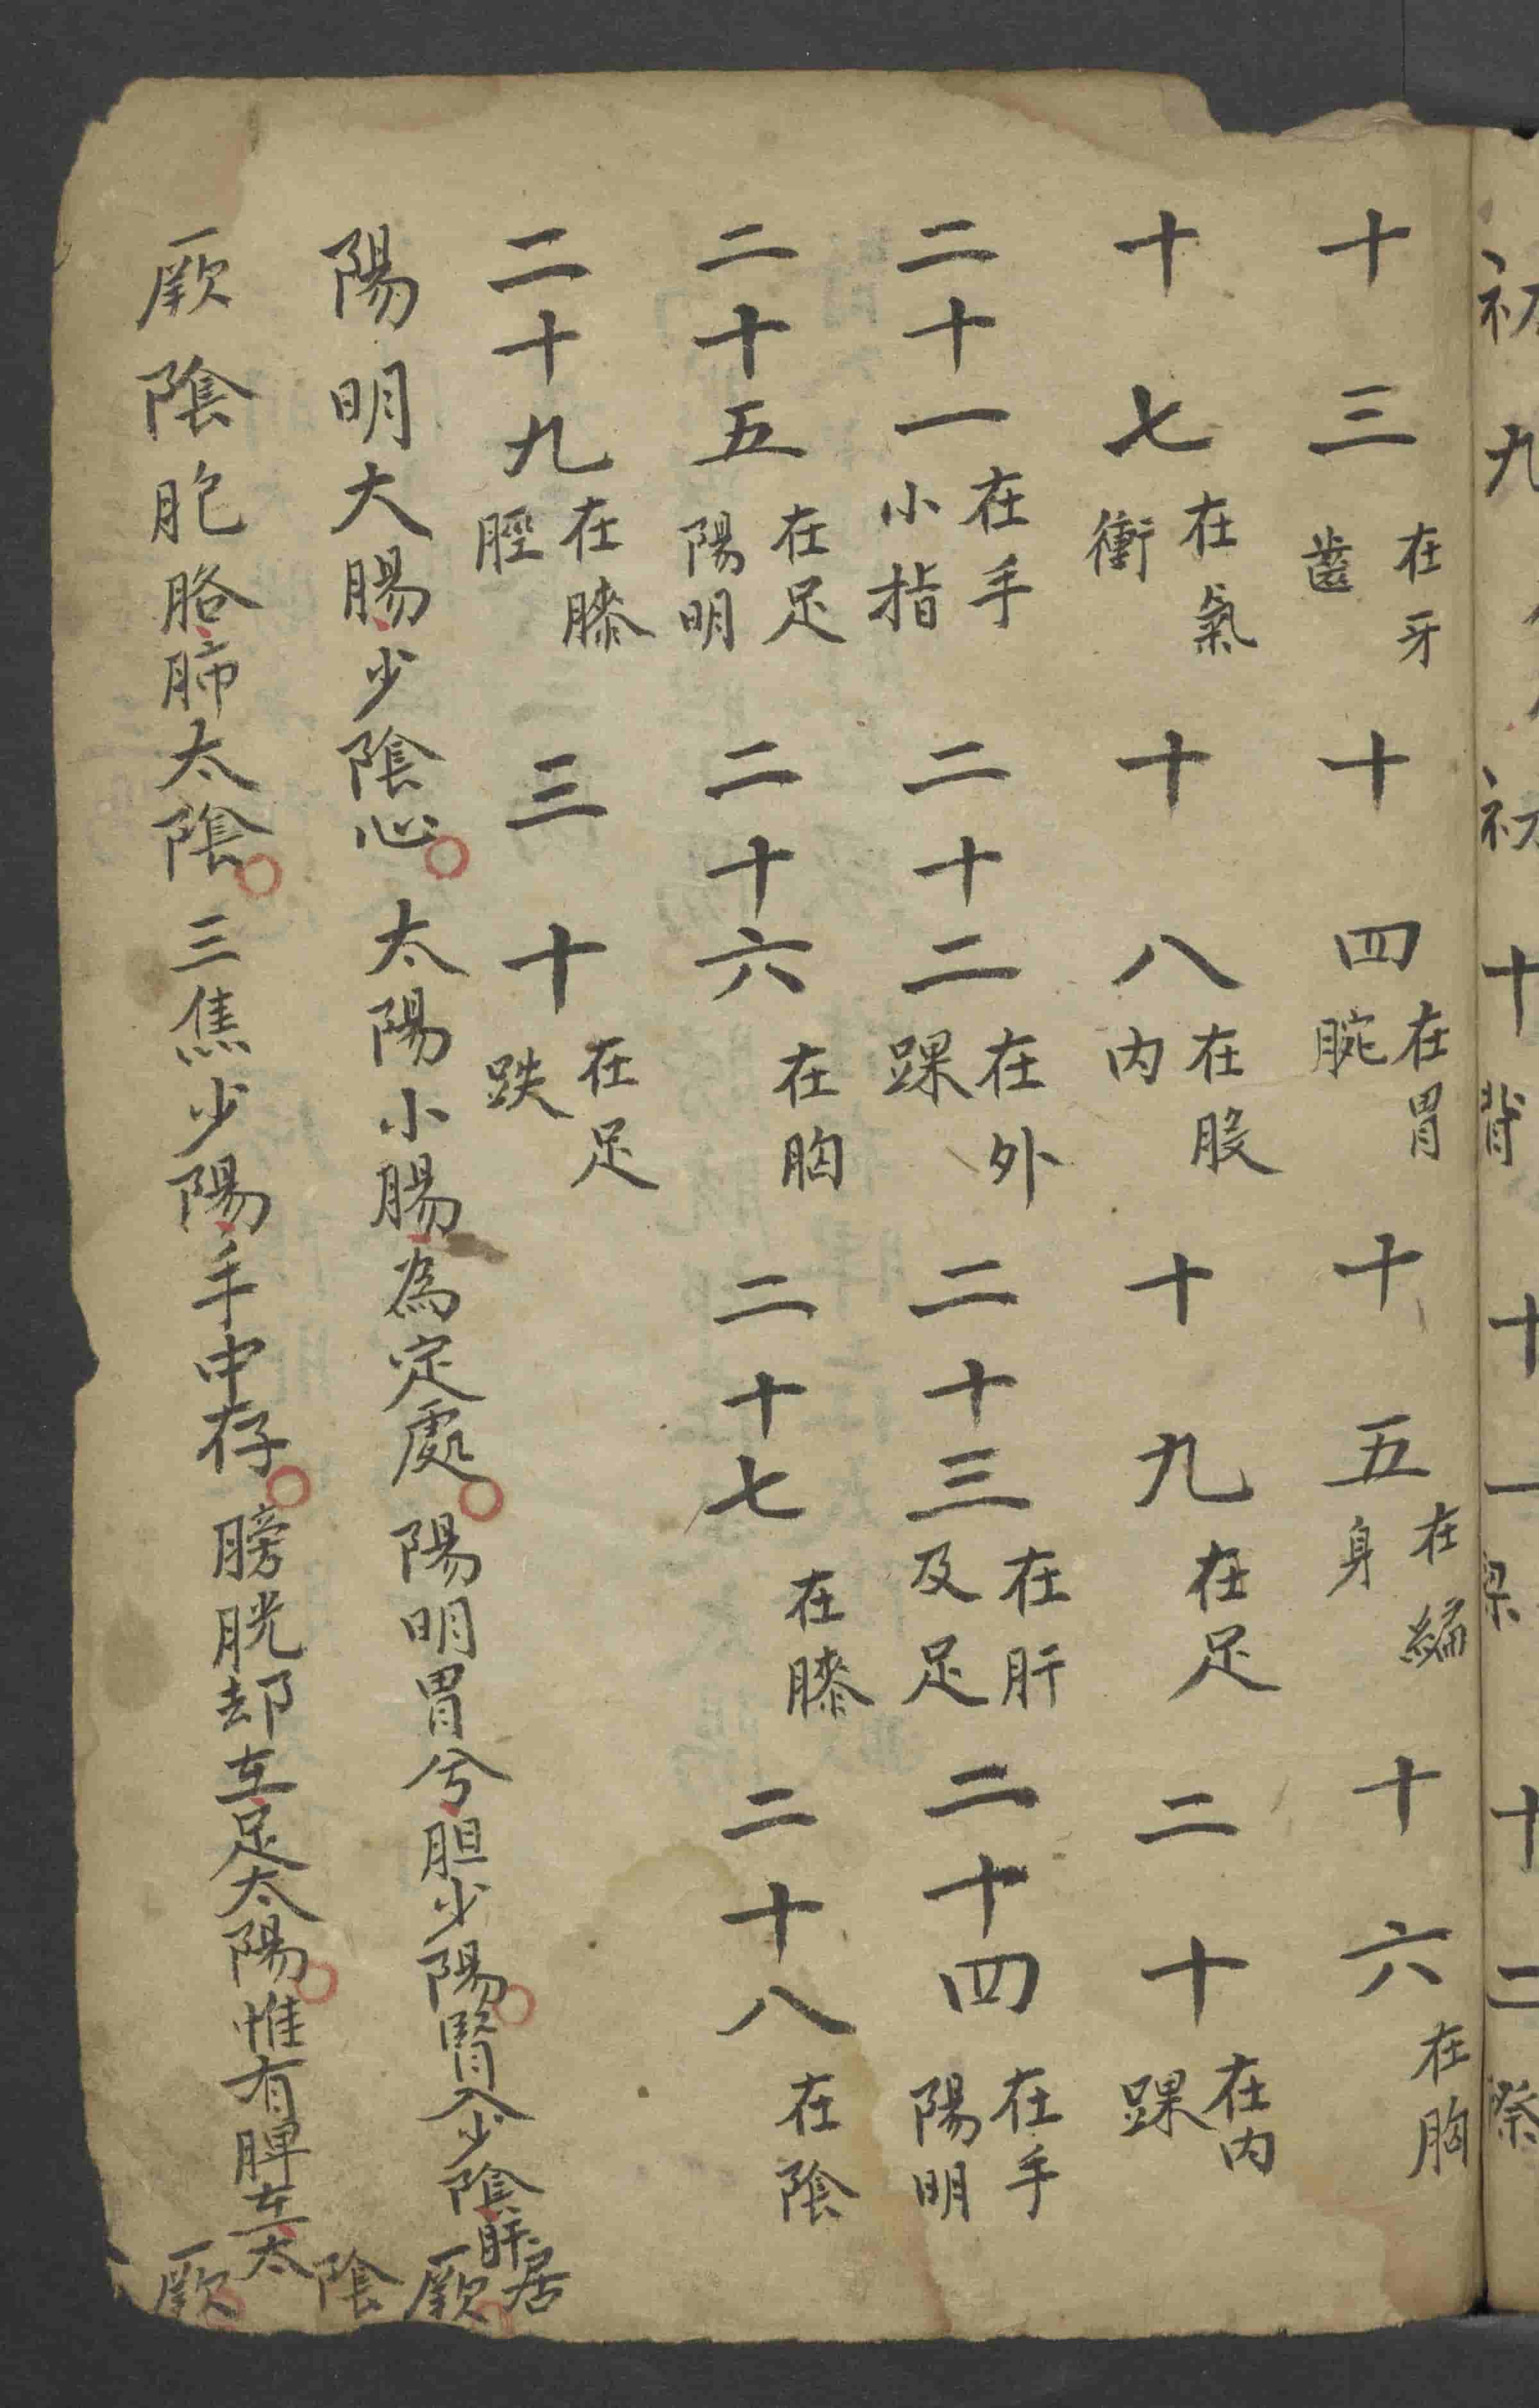 初九 初十背 十一 十二
十三在牙齒 十四在胃腕 十五在編身 十六在胸
十七在氣衝 十八在股內 十九在足 二十在內踝
二十一在手小指 二十二在外踝 二十三在肝及足 二十四在手陽明
二十五在足陽明 二十六在胸 二十七在膝 二十八在陰
二十九在膝脛 三十在足跌
陽明大腸少陰心太陽小腸為定處陽明胃兮胆少陽腎入少陰肝居厥陰
厥陰胞胳肺太陰三焦少陽手中存膀胱却在足太陽惟有脾在太厥